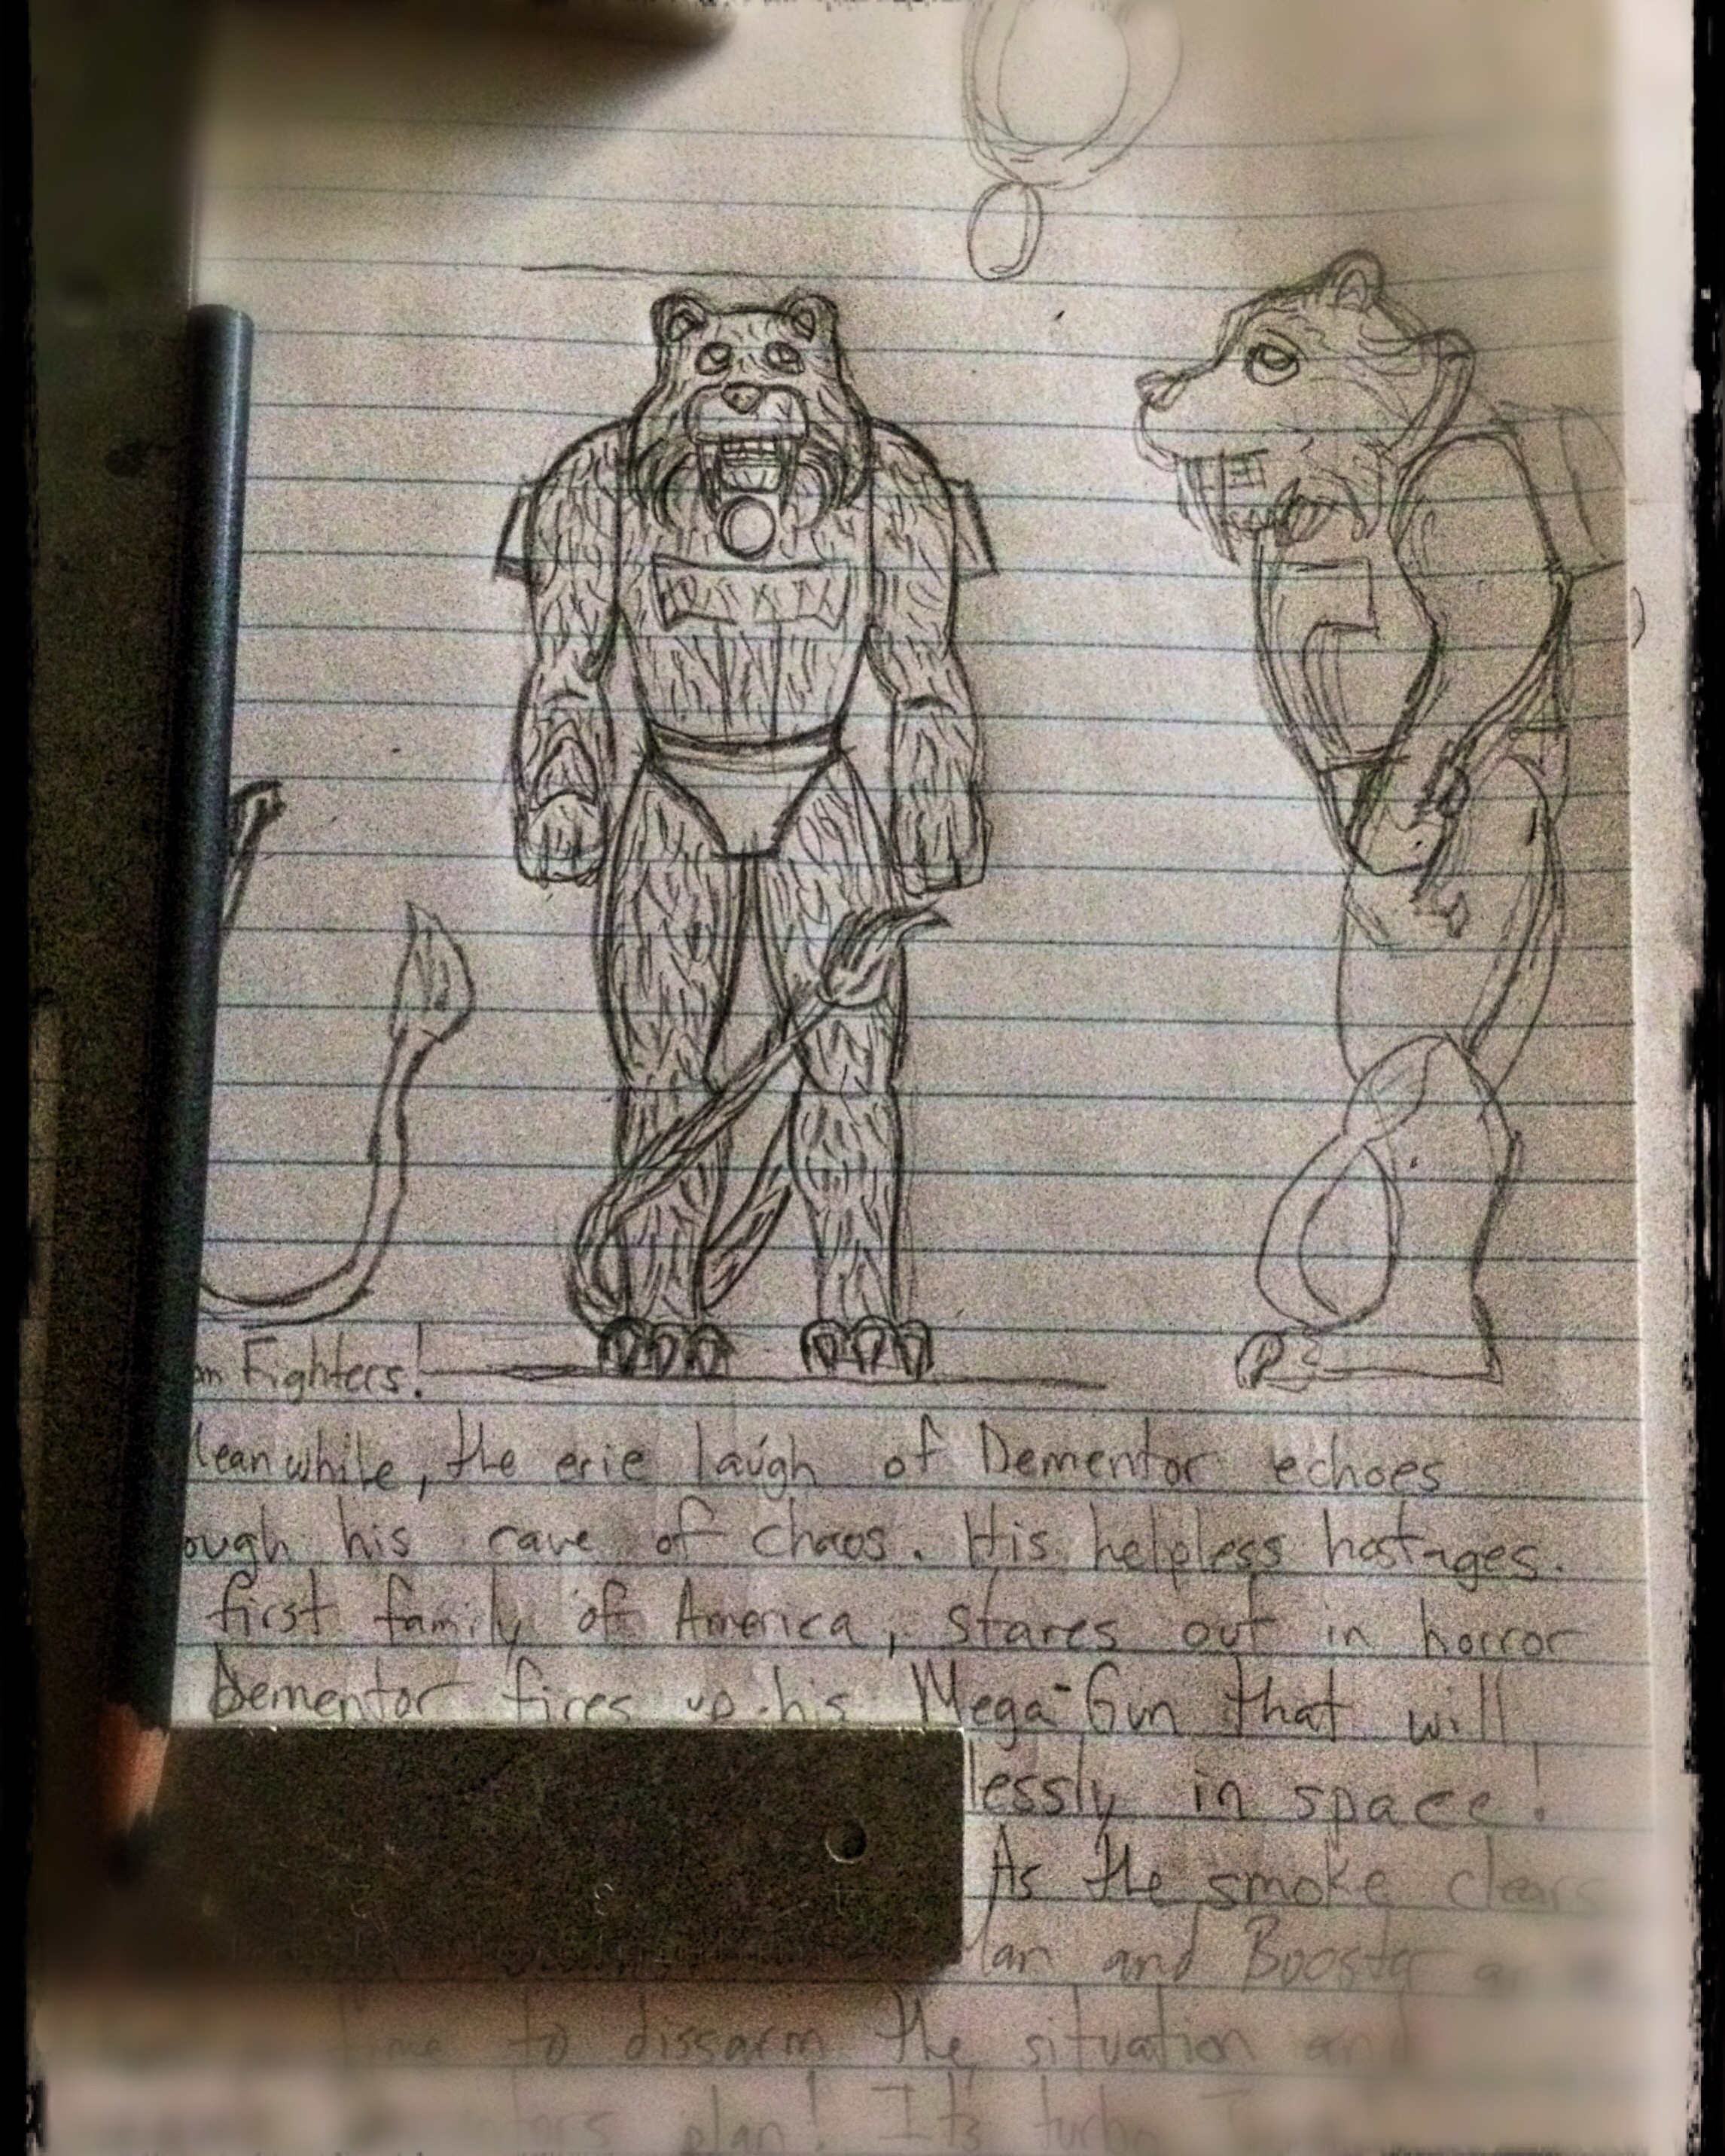 Fighters!
the erie laugh of Dementor echoes
his cave of chaos. His helpless hostages.
first family of America, stares out in horror
Dementor fires up his Mega-Gun that will
lessly in space!
As the smoke clears
and Booster
to dissarm the situation and
plan! Its turbo